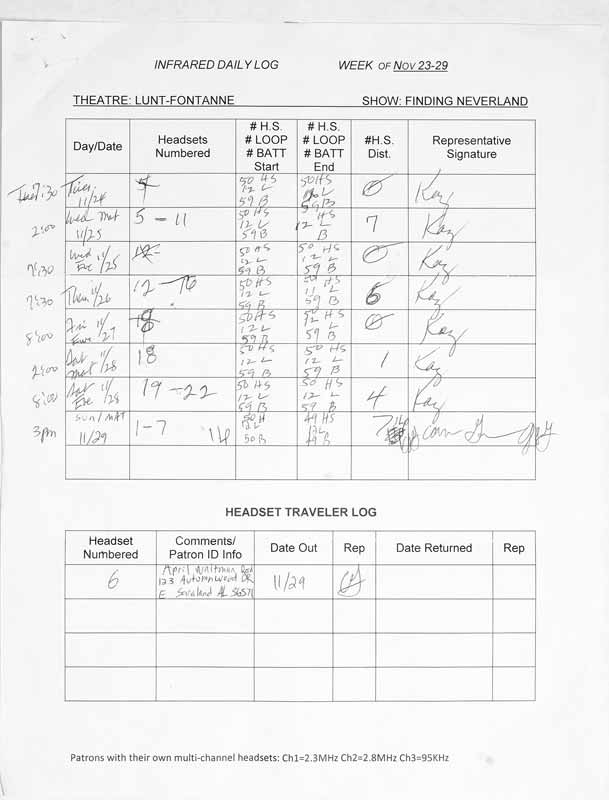 INFRARED DAILY LOG WEEK OF NOV 23-29
THEATRE: LUNT-FONTANNE SHOW: FINDING NEVERLAND
Day/Date Headsets Numbered # H.S. # LOOP # BATT Start # H.S. # LOOP # BATT End #H.S. Dist. Representative Signature
Tues 7:30 Tues 11/24 50 HS 12 L 59 B 50 HS 12 L 59 B 0 Kay
2:00 Wed Mat 11/25 5 - 11 50 HS 12 L 59 B HS 12 L B 7 Kay
7:30 Wed Eve 11/25 50 HS 12 L 59 B 50 HS 12 L 59 B 0 Kay
7:30 Thu 11/26 12 - 50 HS 12 L 59 B 50 HS 11 L 59 B Kay
8:00 Fri Eve 11/27 50 HS 12 L 59 B HS 12 L 59 B 0 Kay
2:00 Sat Mat 11/28 18 50 HS 12 L 59 B 50 HS 12 L 59 B 1 Kay
8:00 Sat Eve 11/28 19 - 22 50 HS 12 L 59 B 50 HS 12 L 59 B 4 Kay
3pm SUN/MAT 11/29 1-7 14 50 H 12 L 50 B 49 HS 12 L 49 B
HEADSET TRAVELER LOG
Headset Numbered Comments/ Patron ID Info Date Out Rep Date Returned Rep
6 April 11/29
123 Autumnwood DR
E AL
Patrons with their own multi-channel headsets: Ch1=2.3MHz Ch2=2.8MHz Ch3=95KHz